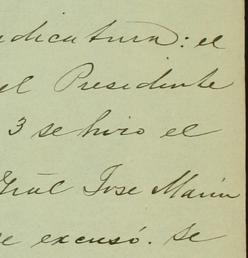 dicatura: el
el Presidente
3 se hizo el
Gral Jose Marin
e excusó. Se